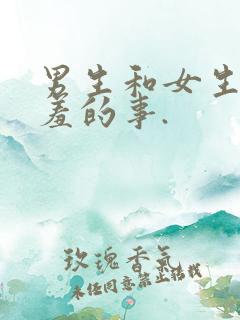 男生和女生
羞的事.
玫瑰香氣
未经同意禁止转载